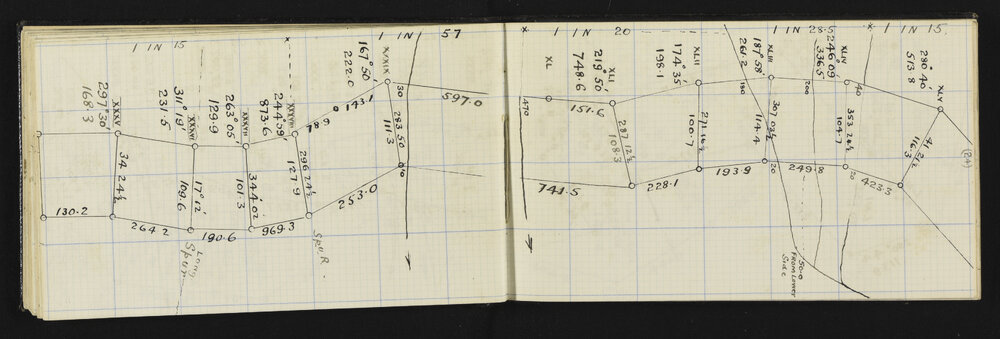 1 IN 15
1 IN 57
XXXV
297° 30'
168.3
34 24½
130.2
264.2
XXXVI
311° 19'
231.5
17° 12'
109.6
190.6
Long
Spur
XXXVII
263° 05'
129.9
344° 02'
101.3
969.3
XXXVIII
244° 09'
873.6
296 24½
127.9
78.9
Spur.
253.0
XXXIX
167° 50'
222.0
143.1
30
283 50
111.3
10
597.0
1 IN 20
1 IN 28.5
1 IN 15
XL
470
151.6
741.5
XLI
219° 50'
748.6
287 12½
108.3
228.1
XLII
174° 35'
196.1
271 16½
100.7
193.9
XLIII
187° 58'
261.2
180
307 03½
114.4
20
249.8
XLIV
246° 09'
336.5
200
40
353 28½
104.7
20
423.3
XLV
280° 40'
513.8
116.3
(24)
50.0
From Lower
Side